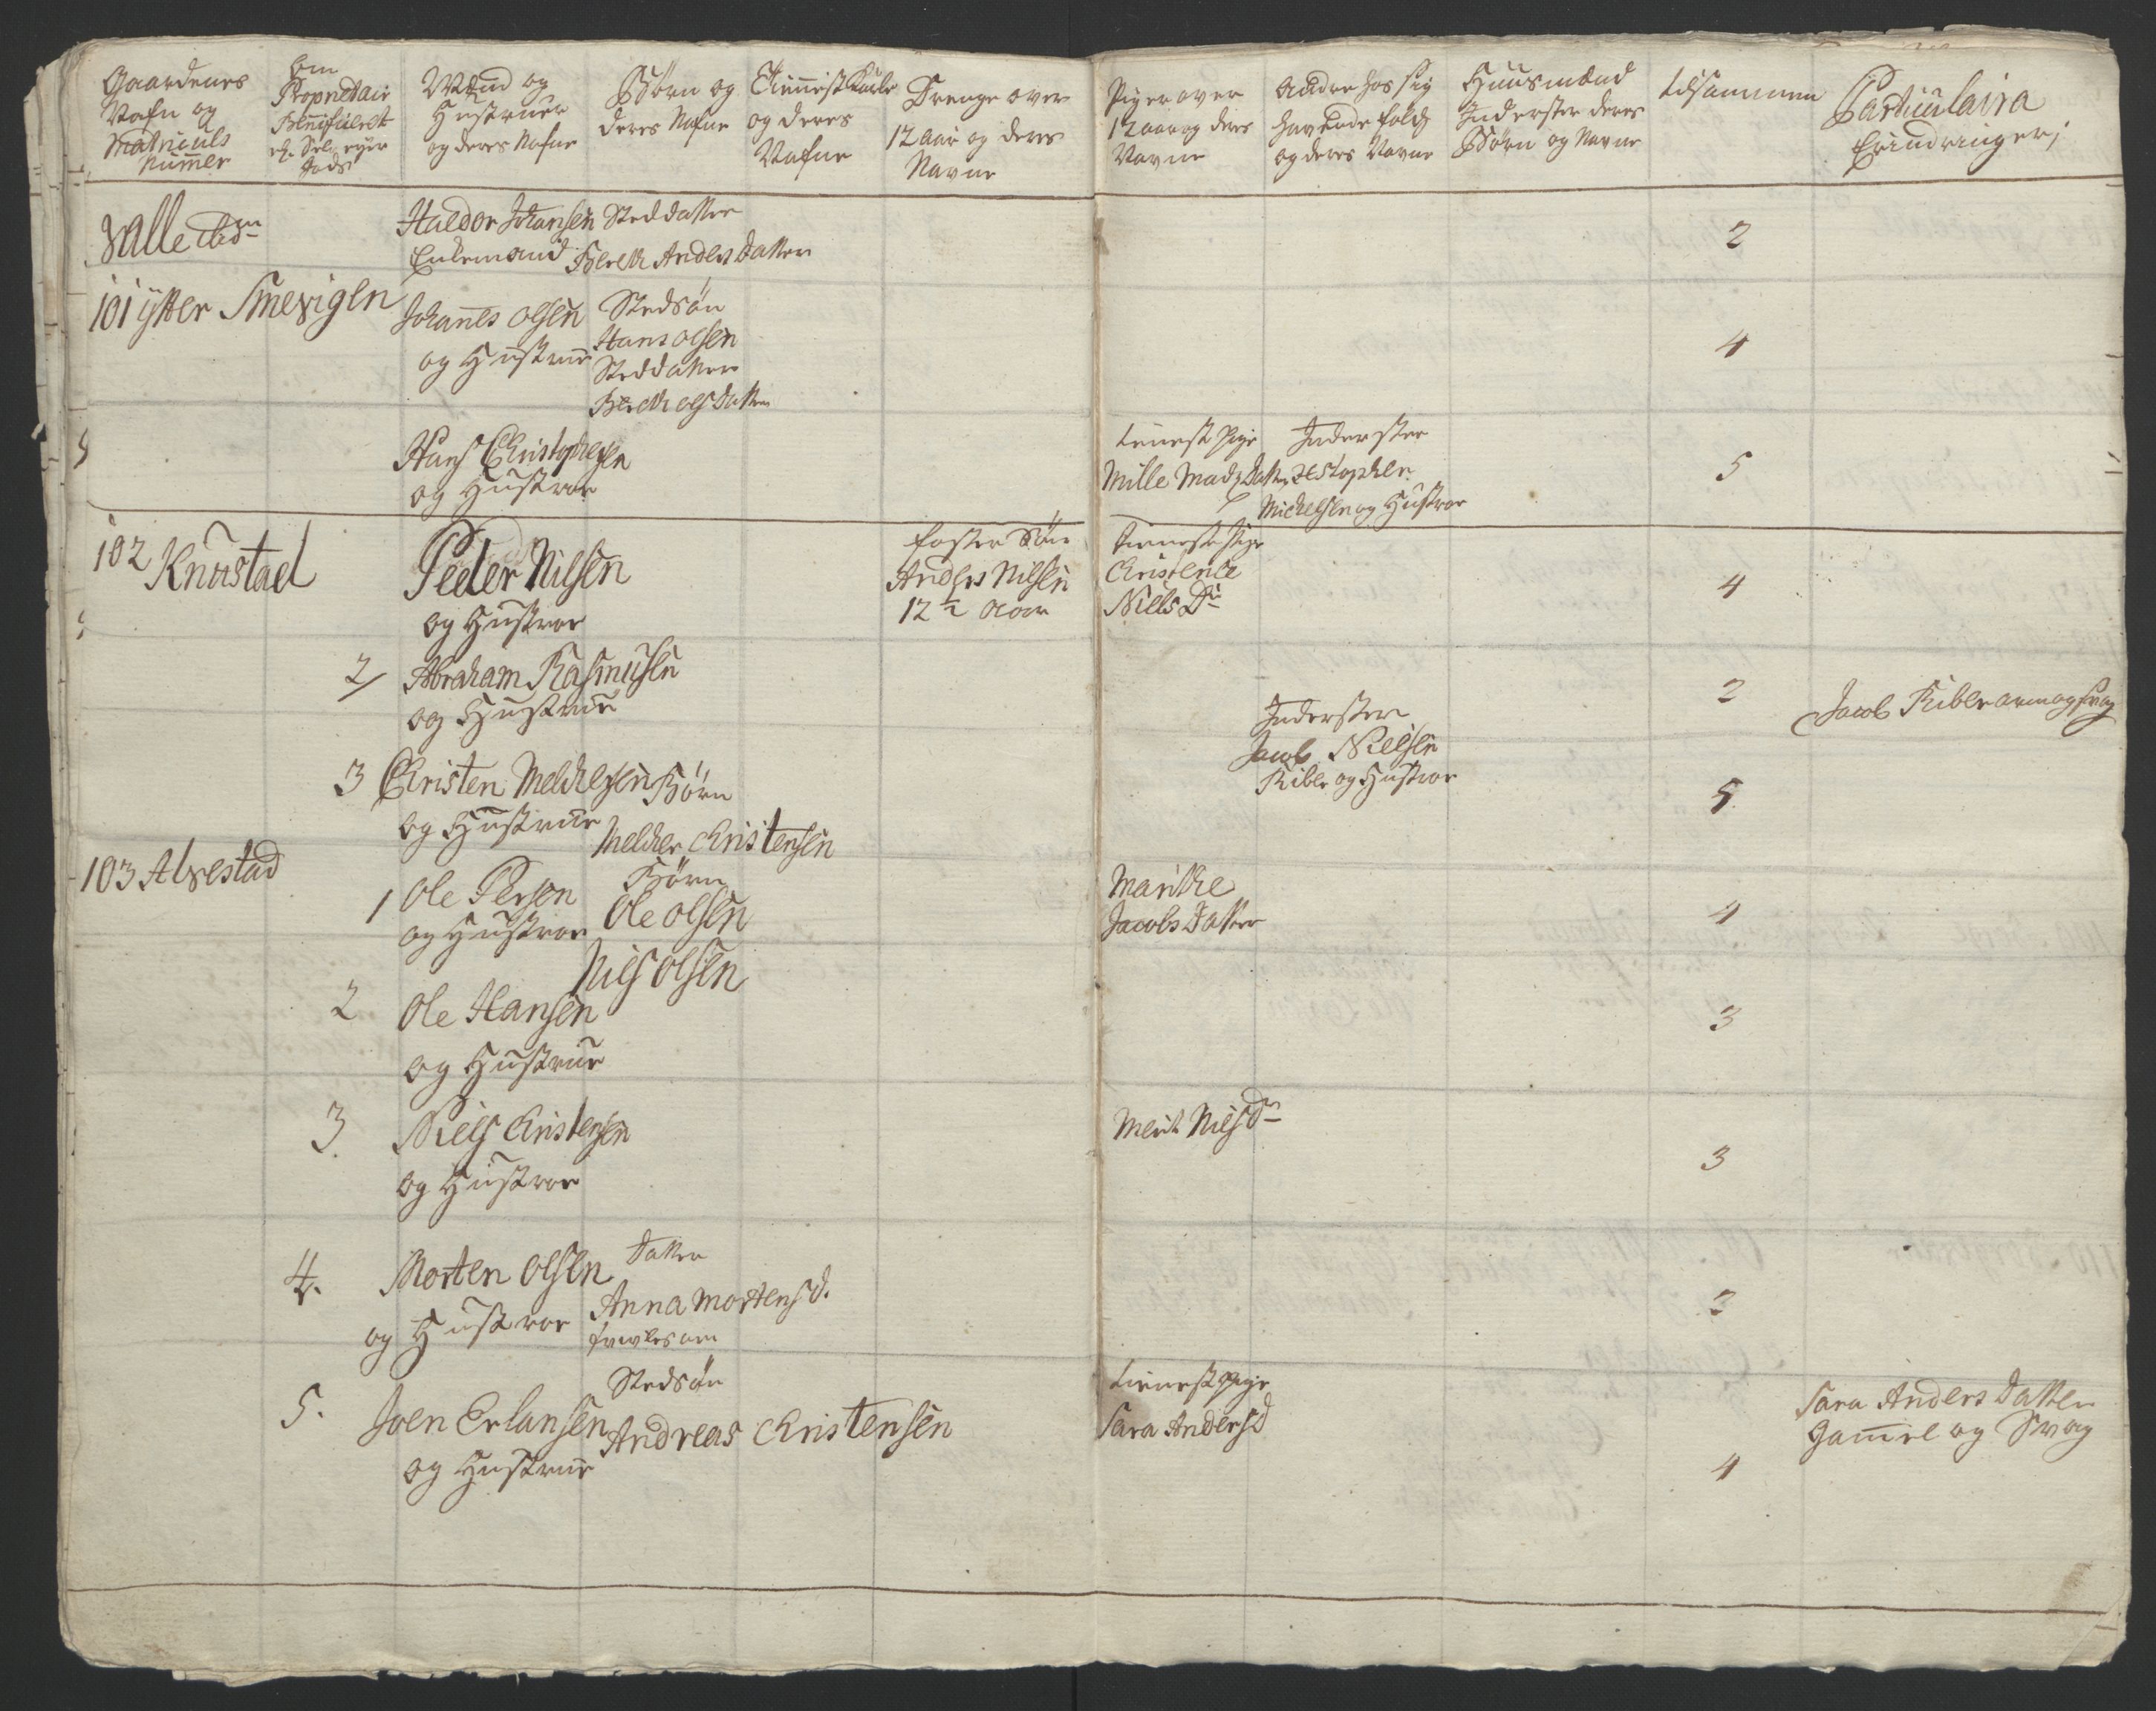 Gaardenes
Nafn og
Matriculs
Nummer
om
Proprietair
Benificeret
ell. Selv eyer
Gods
Mænd og
Hustruer
og deres Nafne
Børn og
deres Nafne
Tienniste Karle
og deres
Nafne
Drenge over
12 Aar og deres
Navne
Piger over
12 aar og deres
Navne
Andre hos sig
havende folch
og deres Navne
Huusmænd
Inderster deres
Børn og Navne
tilsammen
Particulaira
Erindringer
Valle
Haldor Johansen
Enkemand
Steddatter
Berett Anders Datter
2
101 ytter Smevigen
Johannes Olsen
og Hustrue
Stedsøn
Hans Olsen
Steddatter
Berett Ols Datter
4
Hans Christophersen
og Hustroe
tienest Pige
Mille Mads Datter
Inderster
Michelsen og Hustroe
5
102 Knurstad
Peder Nilsen
og Hustroe
foster Søn
Anders Nilsen
12 ½ Aar
tieneste Pige
Christence
Niels Dr
4
2/ Abraham Rasmusen
og Hustrue
2
Jacob Ribbe arm og svag
3 Christen Melchersen
og Hustrue
Børn
Melcher Christensen
Inderster
Jacob Nielsen
Ribbe og Hustroe
5
103 Alvestad
1 Ole Persen
og Hustroe
Børn
Ole Olsen
Nils Olsen
Marithe
Jacobs Datter
4
2 Ole Hansen
og Hustrue
3
3. Niels Christensen
og Hustroe
Merit Nilsdr
3
4. Morten Olsen
og Hustroe
Datter
Anna Mortensd.
3
5. Joen Erlansen
og Hustrue
Stedsøn
Andreas Christensen
tienest Pige
Sara Andersd
4
Sara Anders Datter
Gammel og Svag